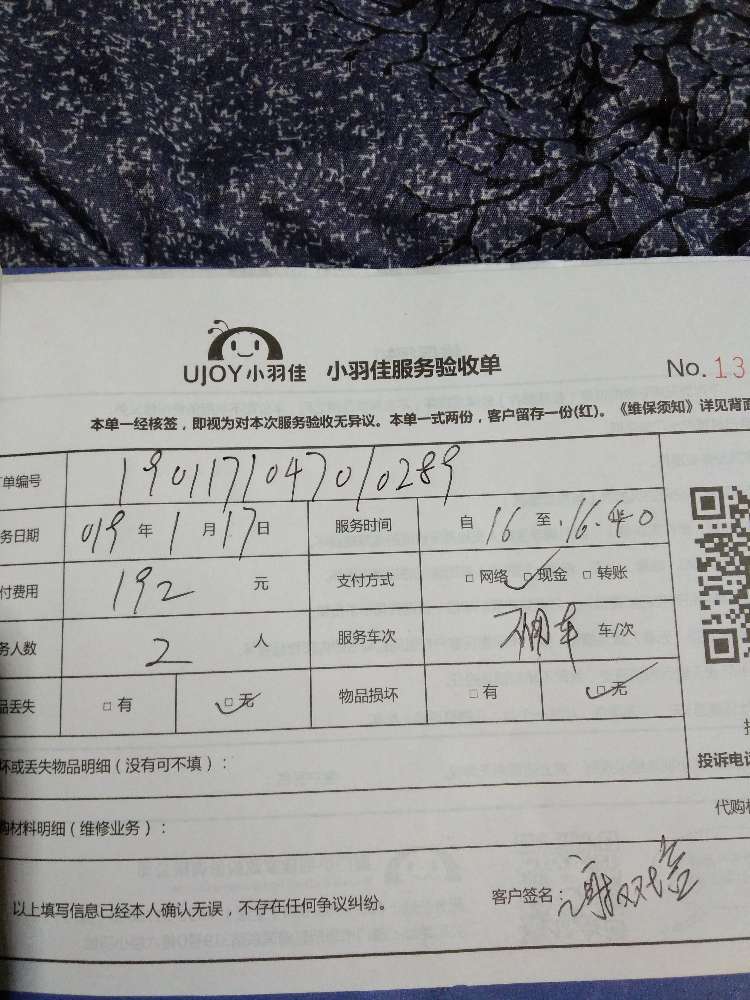 UJOY小羽佳 小羽佳服务验收单 No.13
本单一经核签，即视为对本次服务验收无异议。本单一式两份，客户留存一份(红)。《维保须知》详见背面
单编号 1901171047010289
务日期 019年1月17日 服务时间 自16至.16.40
付费用 192元 支付方式 □网络 □现金 □转账
务人数 2人 服务车次 不用车 车/次
品丢失 □有 □无 物品损坏 □有 □无
坏或丢失物品明细（没有可不填）：
投诉电话
购材料明细（维修业务）： 代购
以上填写信息已经本人确认无误，不存在任何争议纠纷。 客户签名：谢双